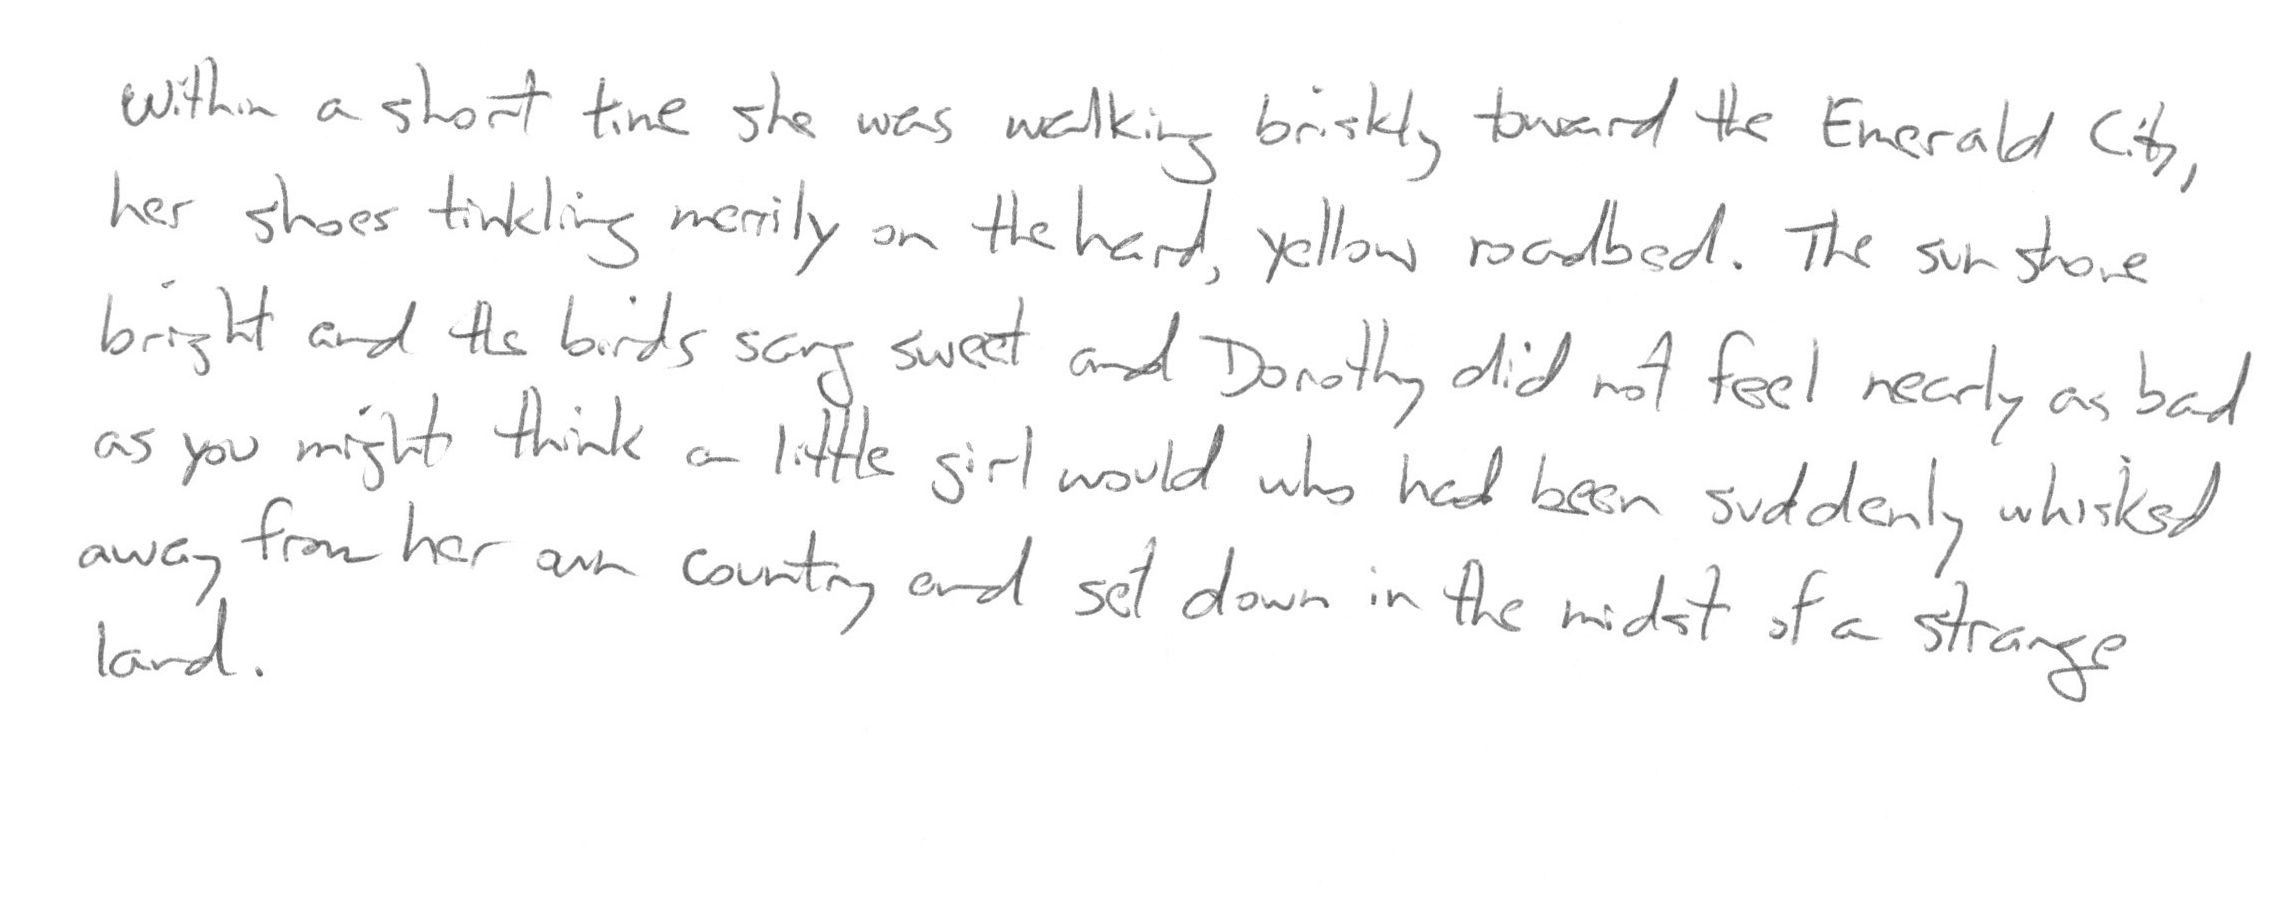 Within a short time she was walking briskly toward the Emerald City,
her shoes tinkling merrily on the hard, yellow roadbed. The sun shone
bright and the birds sang sweet and Dorothy did not feel nearly as bad
as you might think a little girl would who had been suddenly whisked
away from her own country and set down in the midst of a strange
land.